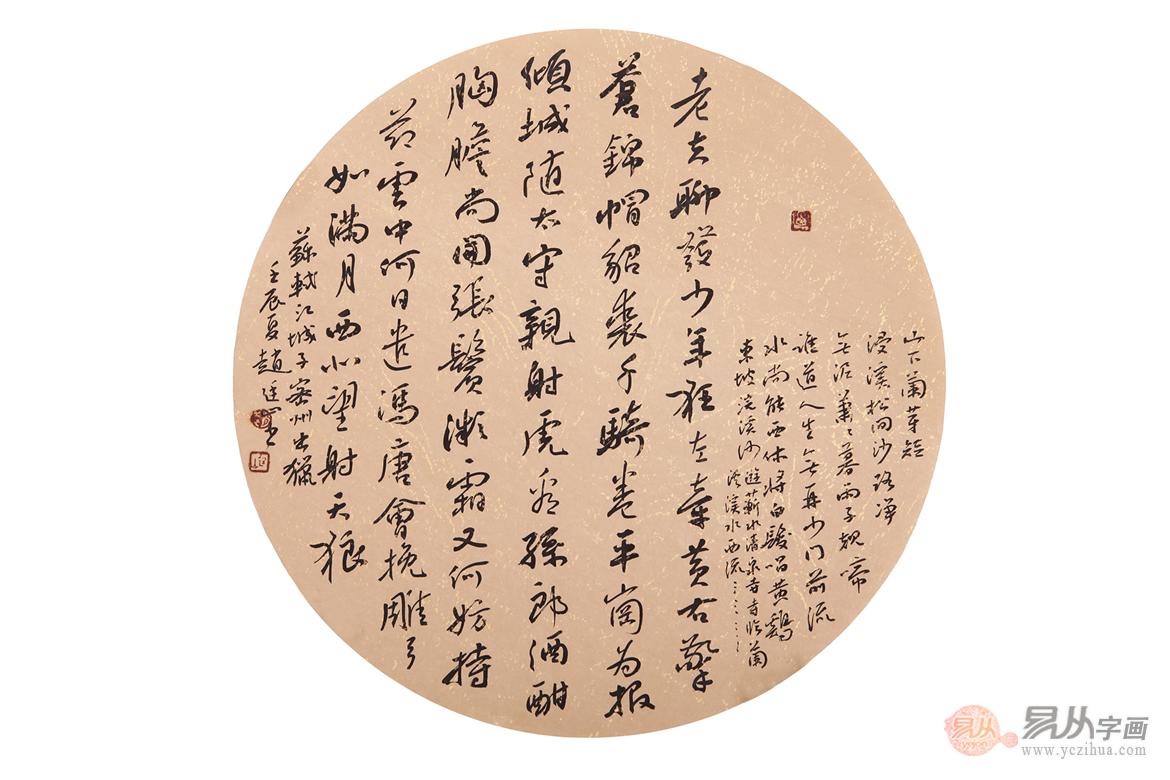 山下蘭芽短
浸溪松间沙路淨
无泥蕭〻暮雨子規啼
誰道人生无再少门前流
水尚能西休將白髮唱黄鷄
東坡浣溪沙遊蘄水清泉寺寺临蘭
溪溪水西流
老夫聊發少年狂左牽黄右擎
蒼錦帽貂裘千騎卷平崗为报
傾城随太守親射虎看孫郎酒酣
胸膽尚開張鬢微霜又何妨持
節雲中何日遣馮唐會挽雕弓
如滿月西北望射天狼
蘇軾江城子密州出獵
壬辰夏趙
易从
易从字画
www.yczihua.com